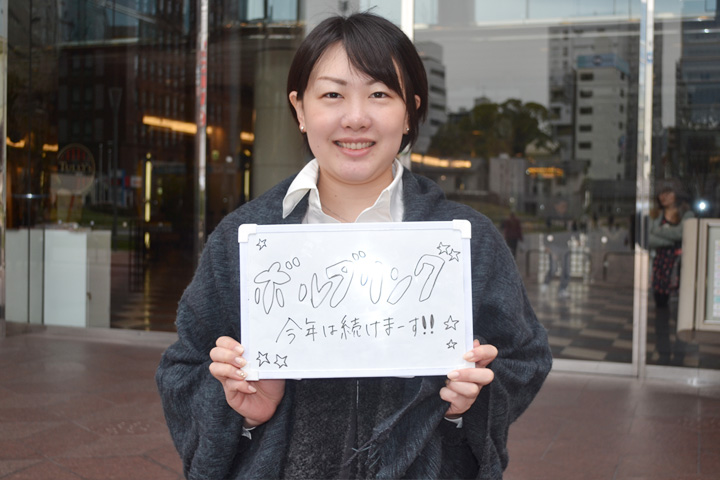 ボルダリング
今年は続けまーす!!